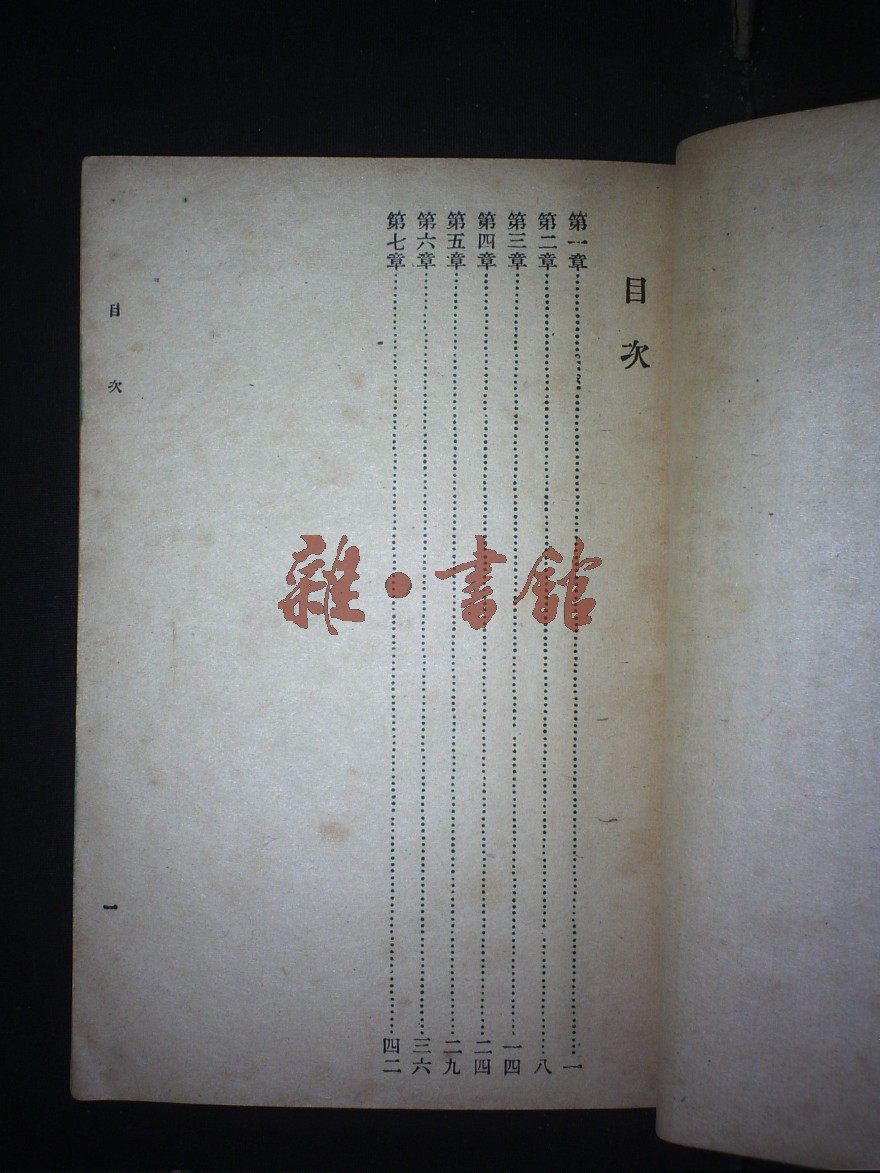 目次
第一章……一
第二章……八
第三章……一四
第四章……二四
第五章……二九
第六章……三六
第七章……四二
目次
一
雜·書館